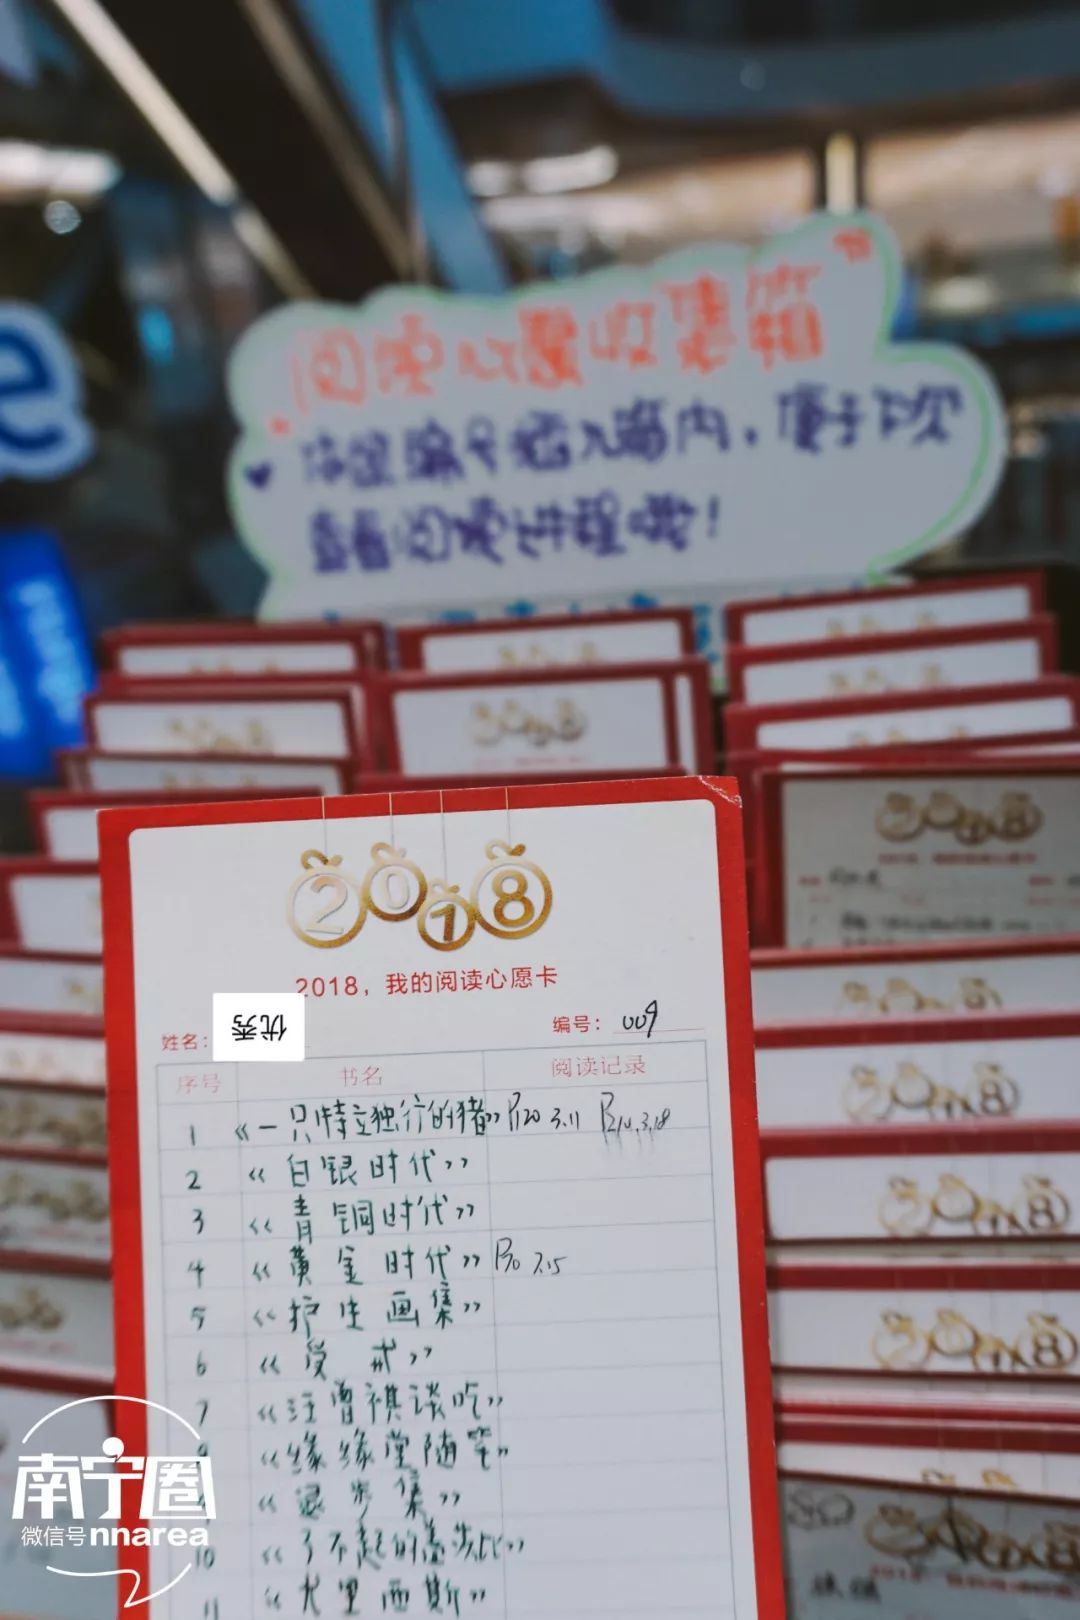 阅读心愿收集箱
请将编号插入箱内，便于下次
查看阅读进程哦！
2018
2018，我的阅读心愿卡
姓名： 优秀 编号： 009
序号 书名 阅读记录
1 《一只特立独行的猪》 P120 3.11 P210.3.18
2 《白银时代》
3 《青铜时代》
4 《黄金时代》 P70 3.15
5 《护生画集》
6 《受戒》
7 《汪曾祺谈吃》
8 《缘缘堂随笔》
9 《退步集》
10 《了不起的盖茨比》
11 《尤里西斯》
南宁圈
微信号 nnarea